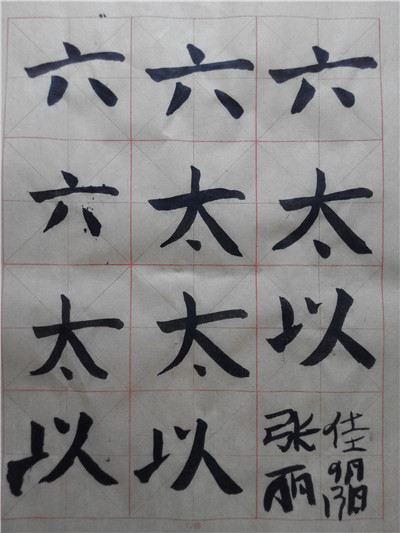 六六六
六太太
太太以
以以
张丽
佳
9月